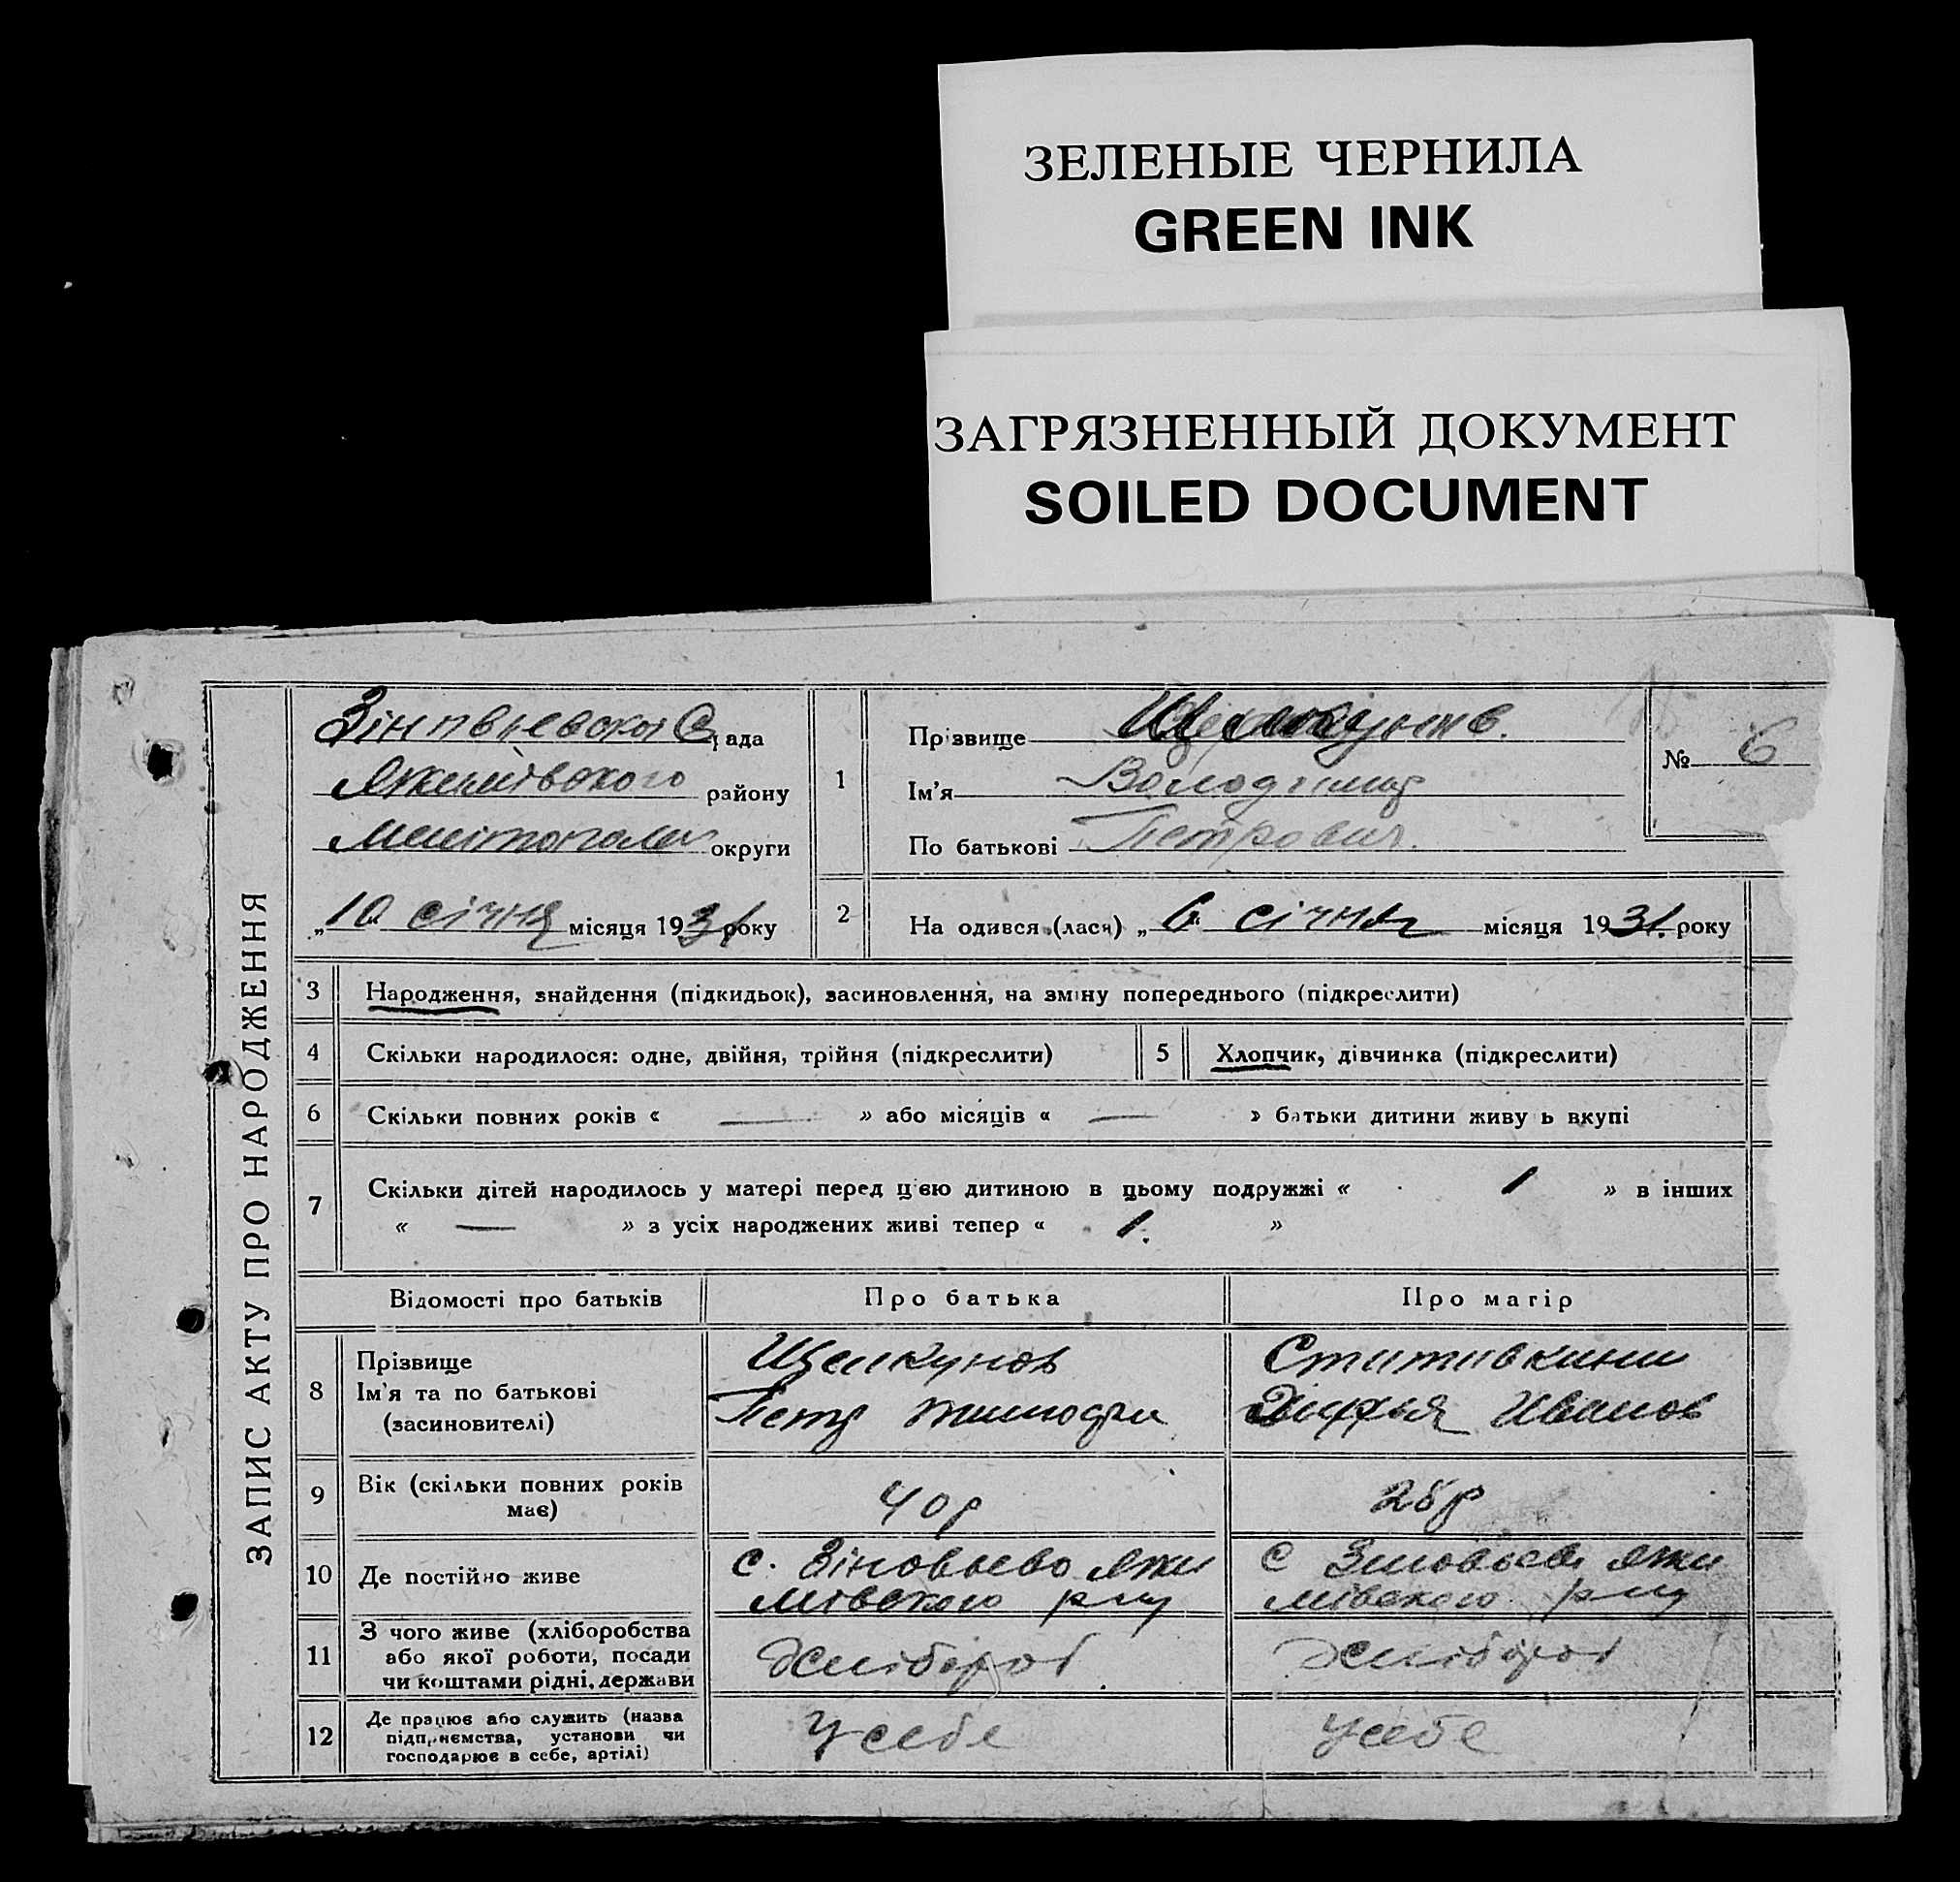 ЗЕЛЕНЫЕ ЧЕРНИЛА
GREEN INK
ЗАГРЯЗНЕННЫЙ ДОКУМЕНТ
SOILED DOCUMENT
ЗАПИС АКТУ ПРО НАРОДЖЕННЯ
рада
району
округи
„ 10 січня місяця 1931 року
№ 6
1 Прізвище
Ім'я Володимир
По батькові Петрович.
2 На одився (лася) „ 6 січня місяця 1931. року
3 Народження, знайдення (підкидьок), засиновлення, на зміну попереднього (підкреслити)
4 Скільки народилося: одне, двійня, трійня (підкреслити)
5 Хлопчик, дівчинка (підкреслити)
6 Скільки повних років « — » або місяців « — » батьки дитини живу ь вкупі
7 Скільки дітей народилось у матері перед цією дитиною в цьому подружжі « 1 » в інших
« — » з усіх народжених живі тепер « 1. »
Відомості про батьків Про батька Про матір
8 Прізвище
Ім'я та по батькові
(засиновителі)
Щелкунов
Петр
Иванов
9 Вік (скільки повних років
має)
40 р
28 р
10 Де постійно живе
с. Зіновьево Яки
мівского рну
с Зиновьево Яки
мівского рну
11 З чого живе (хліборобства
або якої роботи, посади
чи коштами рідні, держави
Хлібороб
Хлібороб
12 Де працює або служить (назва
підприємства, установи чи
господарює в себе, артілі)
У себе
У себе